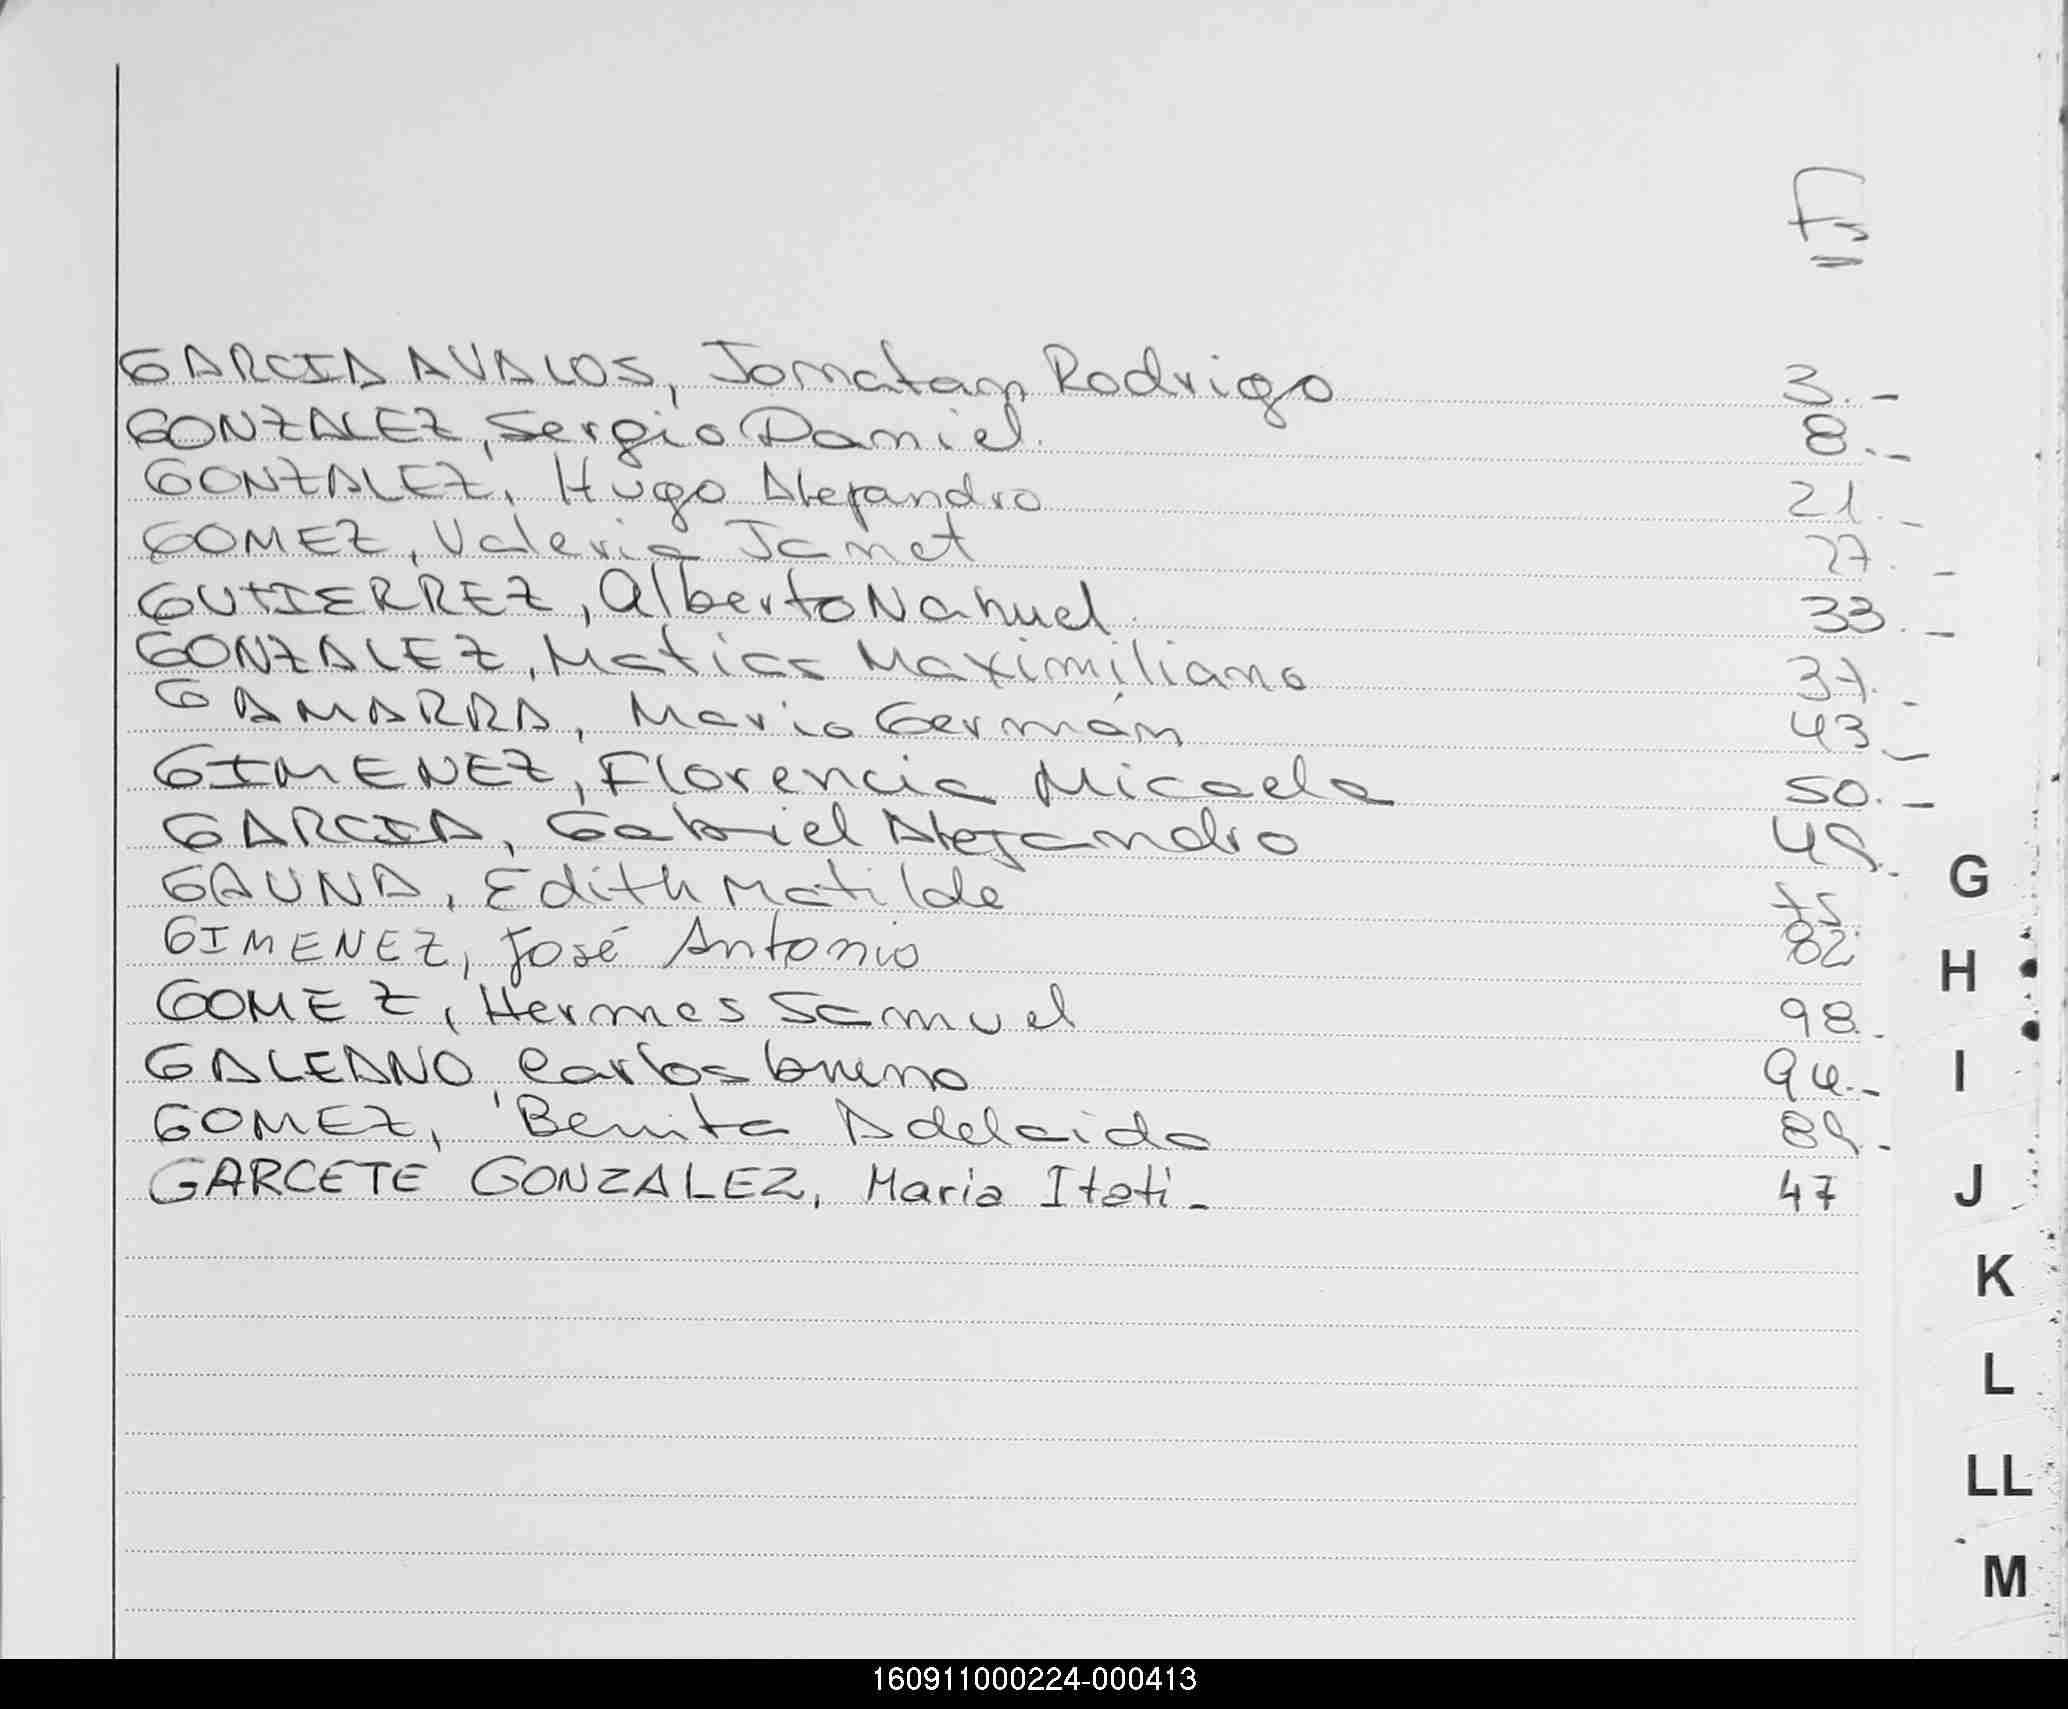 Fs
GARCIA AVALOS, Jonatan Rodrigo 3.-
GONZALEZ, Sergio Daniel. 8.-
GONZALEZ, Hugo Alejandro 21.-
GOMEZ, Valeria Janet 27.-
GUTIERREZ, Alberto Nahuel. 33.-
GONZALEZ, Matias Maximiliano 37.-
GAMARRA, Mario Germán 43.-
GIMENEZ, Florencia Micaela 50.-
GARCIA, Gabriel Alejandro
GAUNA, Edith Matilde 75
GIMENEZ, José Antonio 82
GOMEZ, Hermes Samuel 98.-
GALEANO, Carlos bruno 94.-
GOMEZ, Benita Adelaida
GARCETE GONZALEZ, Maria Itati- 47
G
H
I
J
K
L
LL
M
160911000224-000413